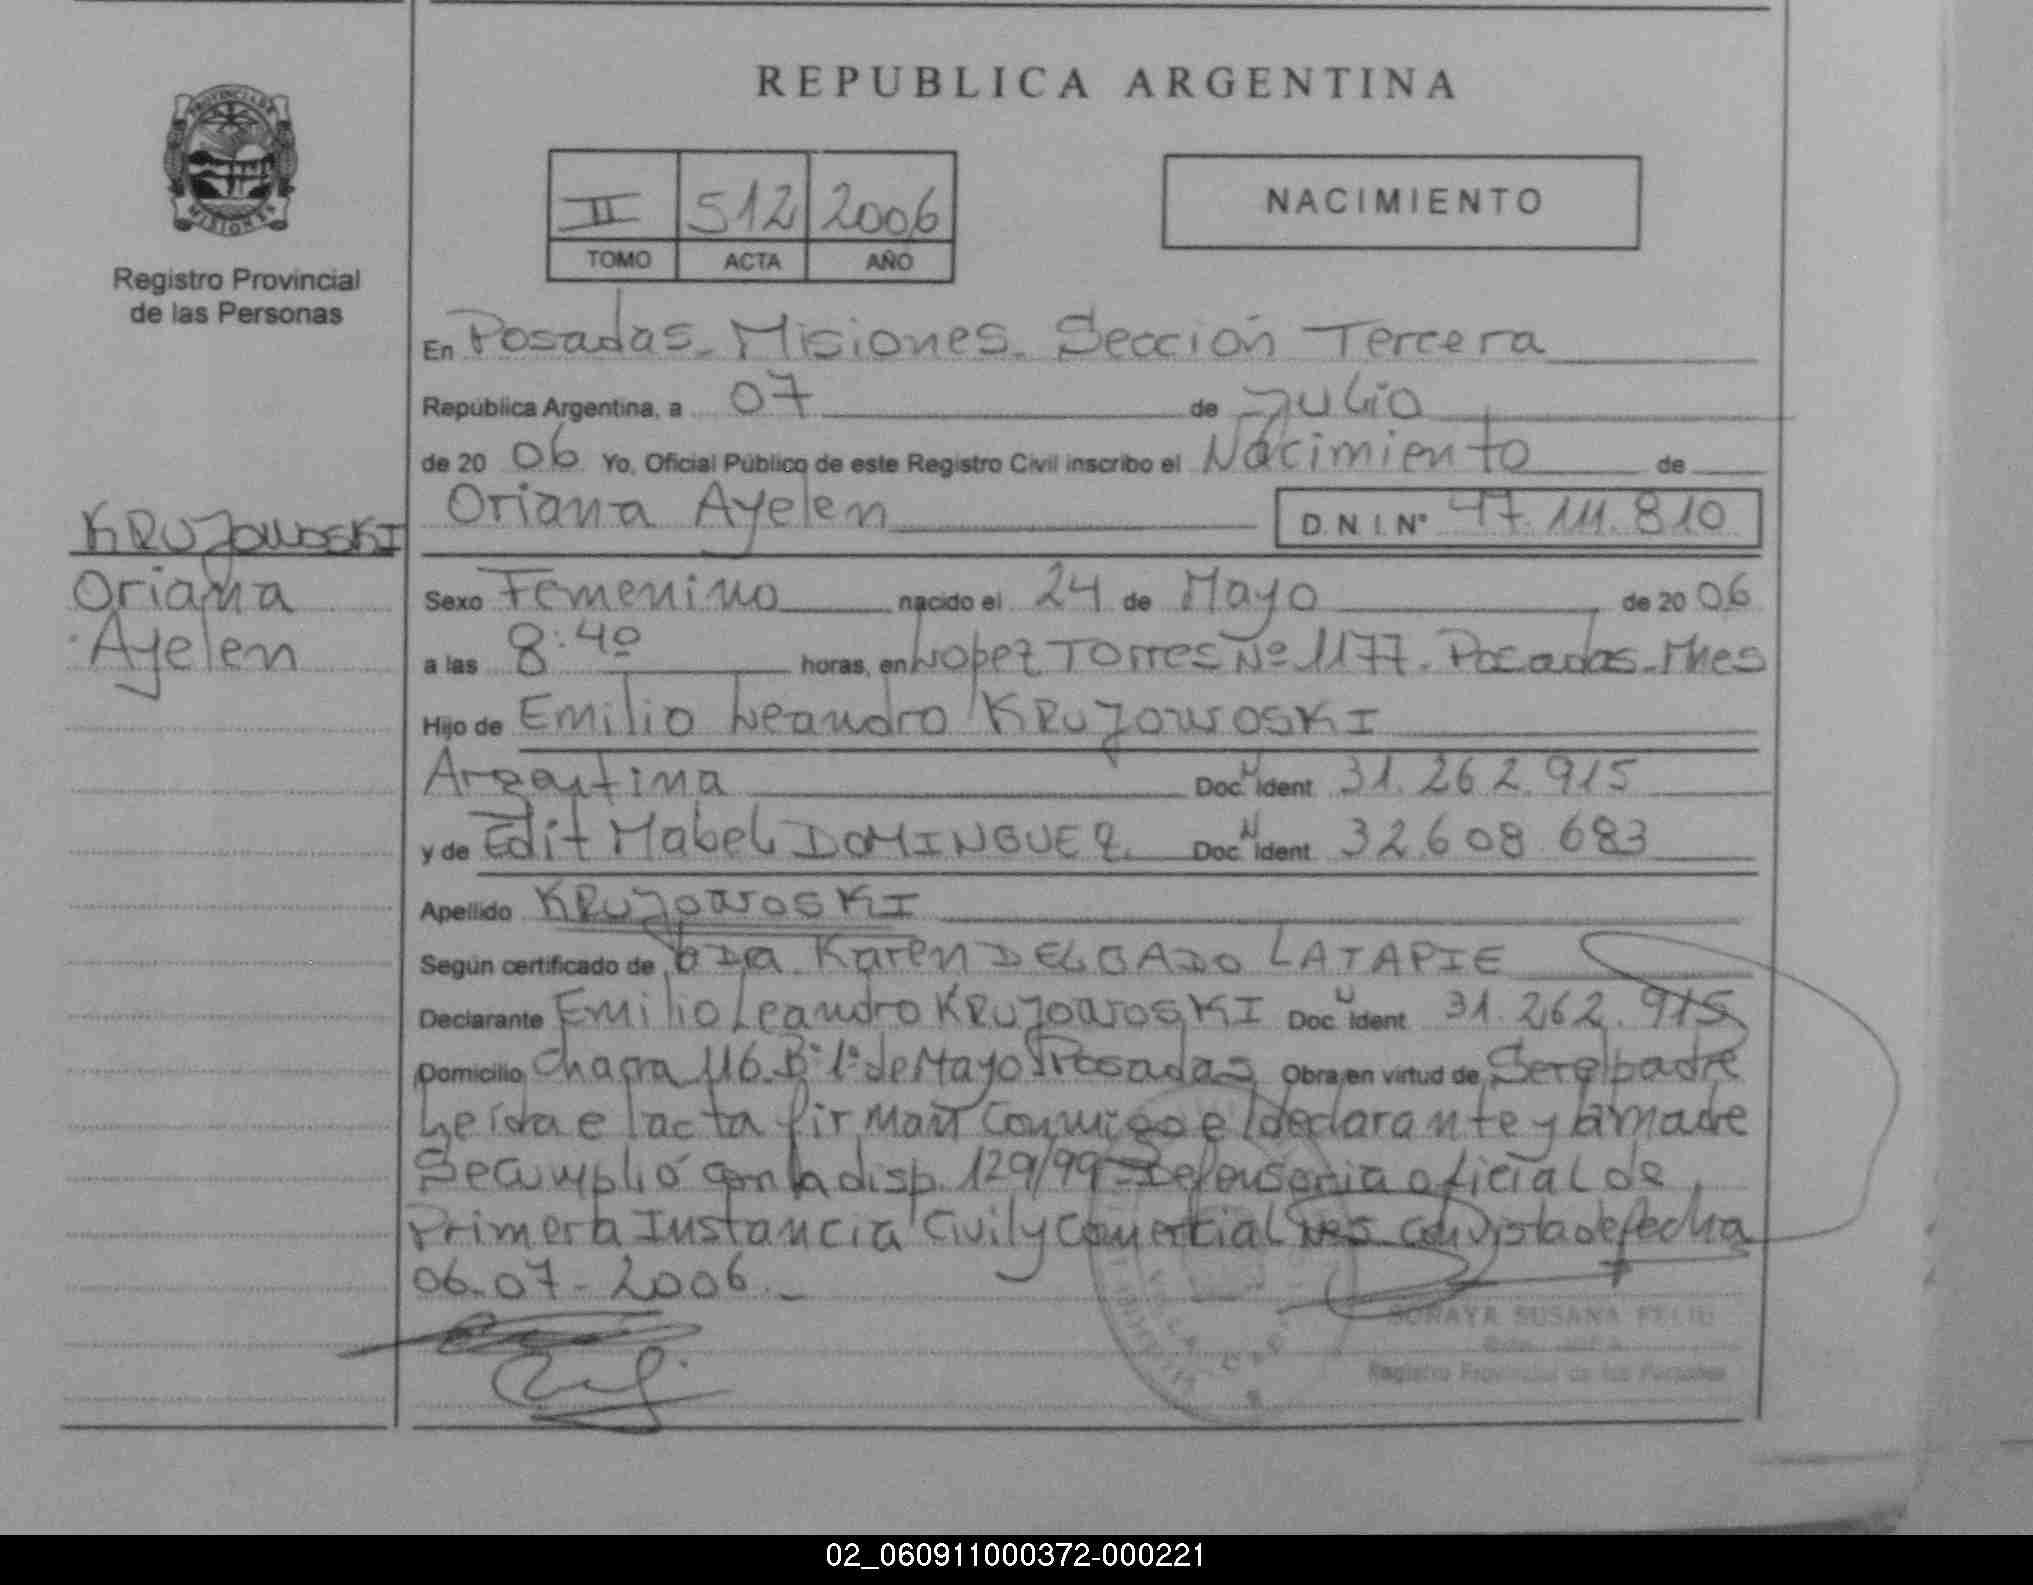 REPUBLICA ARGENTINA
PROVINCIA DE
MISIONES
Registro Provincial
de las Personas
II 512 2006
TOMO ACTA AÑO
NACIMIENTO
En Posadas - Misiones - Sección Tercera
República Argentina, a 07 de Julio
de 20 06 Yo, Oficial Público de este Registro Civil inscribo el Nacimiento de
Oriana Ayelen D.N.I. N° 47.111.810
KRUJOWOSKI
Oriana
Ayelen
Sexo Femenino nacido el 24 de Mayo de 20 06
a las 8:40 horas, en Lopez Torres Nº 1177. Posadas - Mnes
Hijo de Emilio Leandro KRUJOWOSKI
Argentina Doc. N Ident 31.262.915
y de Edit Mabel DOMINGUEZ Doc. N Ident 32.608.683
Apellido KRUJOWOSKI
Según certificado de Dra. Karen DELGADO LATAPIE
Declarante Emilio Leandro KRUJOWOSKI Doc. N Ident 31.262.915
Domicilio Chacra 116 - Bº 1º de Mayo Posadas Obra en virtud de Ser el padre
Leida el acta firman Conmigo el declarante y la madre
Se cumplió con la disp. 129/99 - Defensoria oficial de
Primera Instancia Civil y Comercial Nº5 con vista de fecha
06-07-2006.-
SORAYA SUSANA FELIU
Registro Provincial de las Personas
02_060911000372-000221